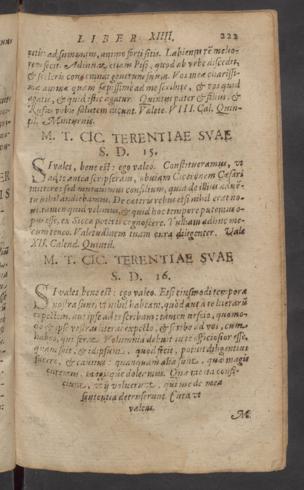 LIBER XIIII. 222
natus ad summam, animo forti sitis. Labienus rē melio-
rem fecit. Adiuuat etiam Piso, quod ab vrbe discedit,
& sceleris condemnat generum suum. Vos meæ charissi-
mæ animæ quàm sæpissimè ad me scribite, & vos quid
agatis, & quid istic agatur. Quintus pater & filius, &
Rufus vobis salutem dicunt. Valete. VIII. Cal. Quin-
til. Minturnis.
M. T. CIC. TERENTIAE SVAE
S. D. 15.
SI vales, bene est: ego valeo. Constitueramus, vt
ad te antea scripseram, obuiam Ciceronem Cæsari
mittere: sed mutauimus consilium, quia de illius aduē-
tu nihil audiebamus. De cæteris rebus etsi nihil erat no-
ui, tamen quid velimus, & quid hoc tempore putemus o-
pus esse, ex Sicca poteris cognoscere. Tulliam adhuc me-
cum teneo. Valetudinem tuam cura diligenter. Vale
XII. Calend. Quintil.
M. T. CIC. TERENTIAE SVAE
S. D. 16.
SI vales bene est: ego valeo. Etsi eiusmodi tempora
nostra sunt, vt nihil habeam, quòd aut à te literarū
expectem, aut ipse ad te scribam: tamen nescio, quomo-
do & ipse vestras literas expecto, & scribo ad vos, cum
habeo, qui ferat. Volumnia debuit in te officiosior esse,
quàm fuit, & id ipsum, quod fecit, potuit diligentius
facere, & cautius: quanquam alia sunt, quæ magis
curemus, magisque dolerimus. Quæ me ita confi-
ciunt, vt ij voluerunt, qui me de mea
sententia detruserunt. Cura vt
valeas.
M.